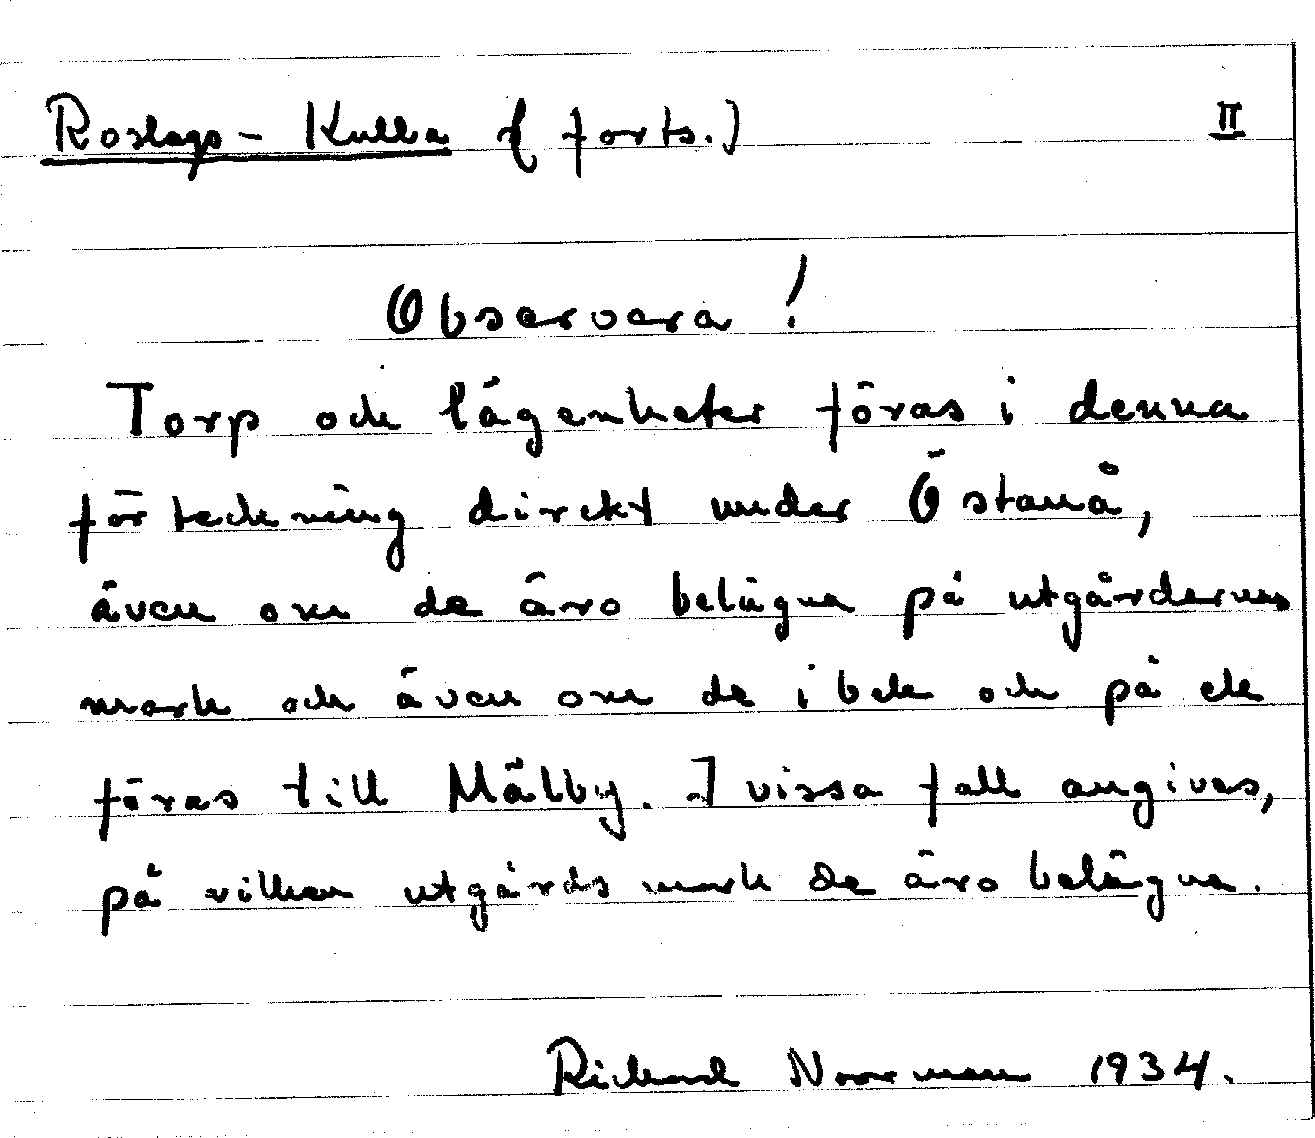 Roslags-Kulla (forts.) II
Observera!
Torp och lägenheter föras i denna
förteckning direkt under Östanå,
även om de äro belägna på utgårdernas
mark och även om de i bek och på ek
föras till Mälby. I vissa fall angives,
på vilken utgårds mark de äro belägna.
Richard Noorman 1934.